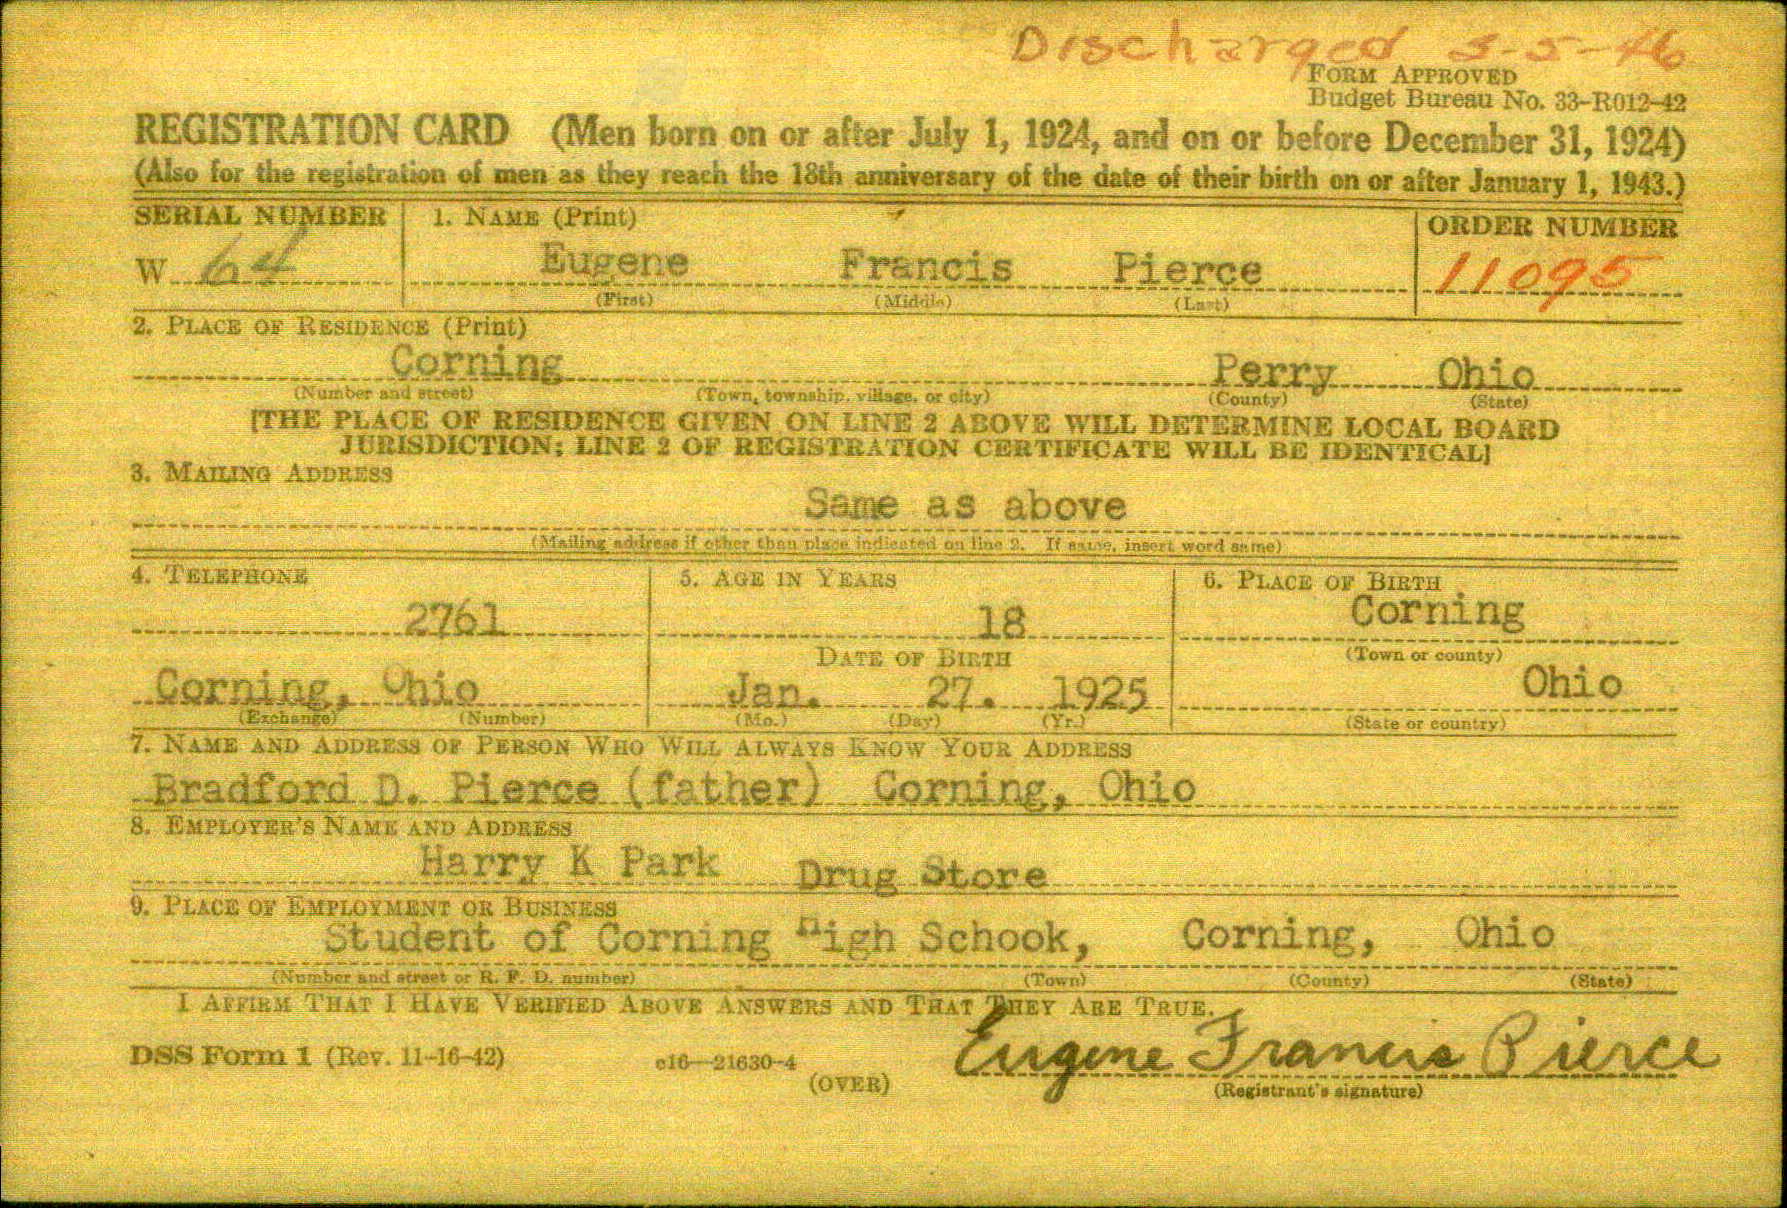 Discharged 3-5-46
FORM APPROVED
Budget Bureau No. 33-R012-42
REGISTRATION CARD (Men born on or after July 1, 1924, and on or before December 31, 1924)
(Also for the registration of men as they reach the 18th anniversary of the date of their birth on or after January 1, 1943.)
SERIAL NUMBER 1. NAME (Print) ORDER NUMBER
W 64 Eugene Francis Pierce 11095
(First) (Middle) (Last)
2. PLACE OF RESIDENCE (Print)
Corning Perry Ohio
(Number and street) (Town, township, village, or city) (County) (State)
[THE PLACE OF RESIDENCE GIVEN ON LINE 2 ABOVE WILL DETERMINE LOCAL BOARD
JURISDICTION; LINE 2 OF REGISTRATION CERTIFICATE WILL BE IDENTICAL]
3. MAILING ADDRESS
Same as above
(Mailing address if other than place indicated on line 2. If same, insert word same)
4. TELEPHONE 5. AGE IN YEARS 6. PLACE OF BIRTH
2761 18 Corning
DATE OF BIRTH (Town or county)
Corning, Ohio Jan. 27. 1925 Ohio
(Exchange) (Number) (Mo.) (Day) (Yr.) (State or country)
7. NAME AND ADDRESS OF PERSON WHO WILL ALWAYS KNOW YOUR ADDRESS
Bradford D. Pierce (father) Corning, Ohio
8. EMPLOYER'S NAME AND ADDRESS
Harry K Park Drug Store
9. PLACE OF EMPLOYMENT OR BUSINESS
Student of Corning High Schook, Corning, Ohio
(Number and street or R. F. D. number) (Town) (County) (State)
I AFFIRM THAT I HAVE VERIFIED ABOVE ANSWERS AND THAT THEY ARE TRUE.
DSS Form 1 (Rev. 11-16-42) c16—21630-4 Eugene Francis Pierce
(OVER) (Registrant's signature)